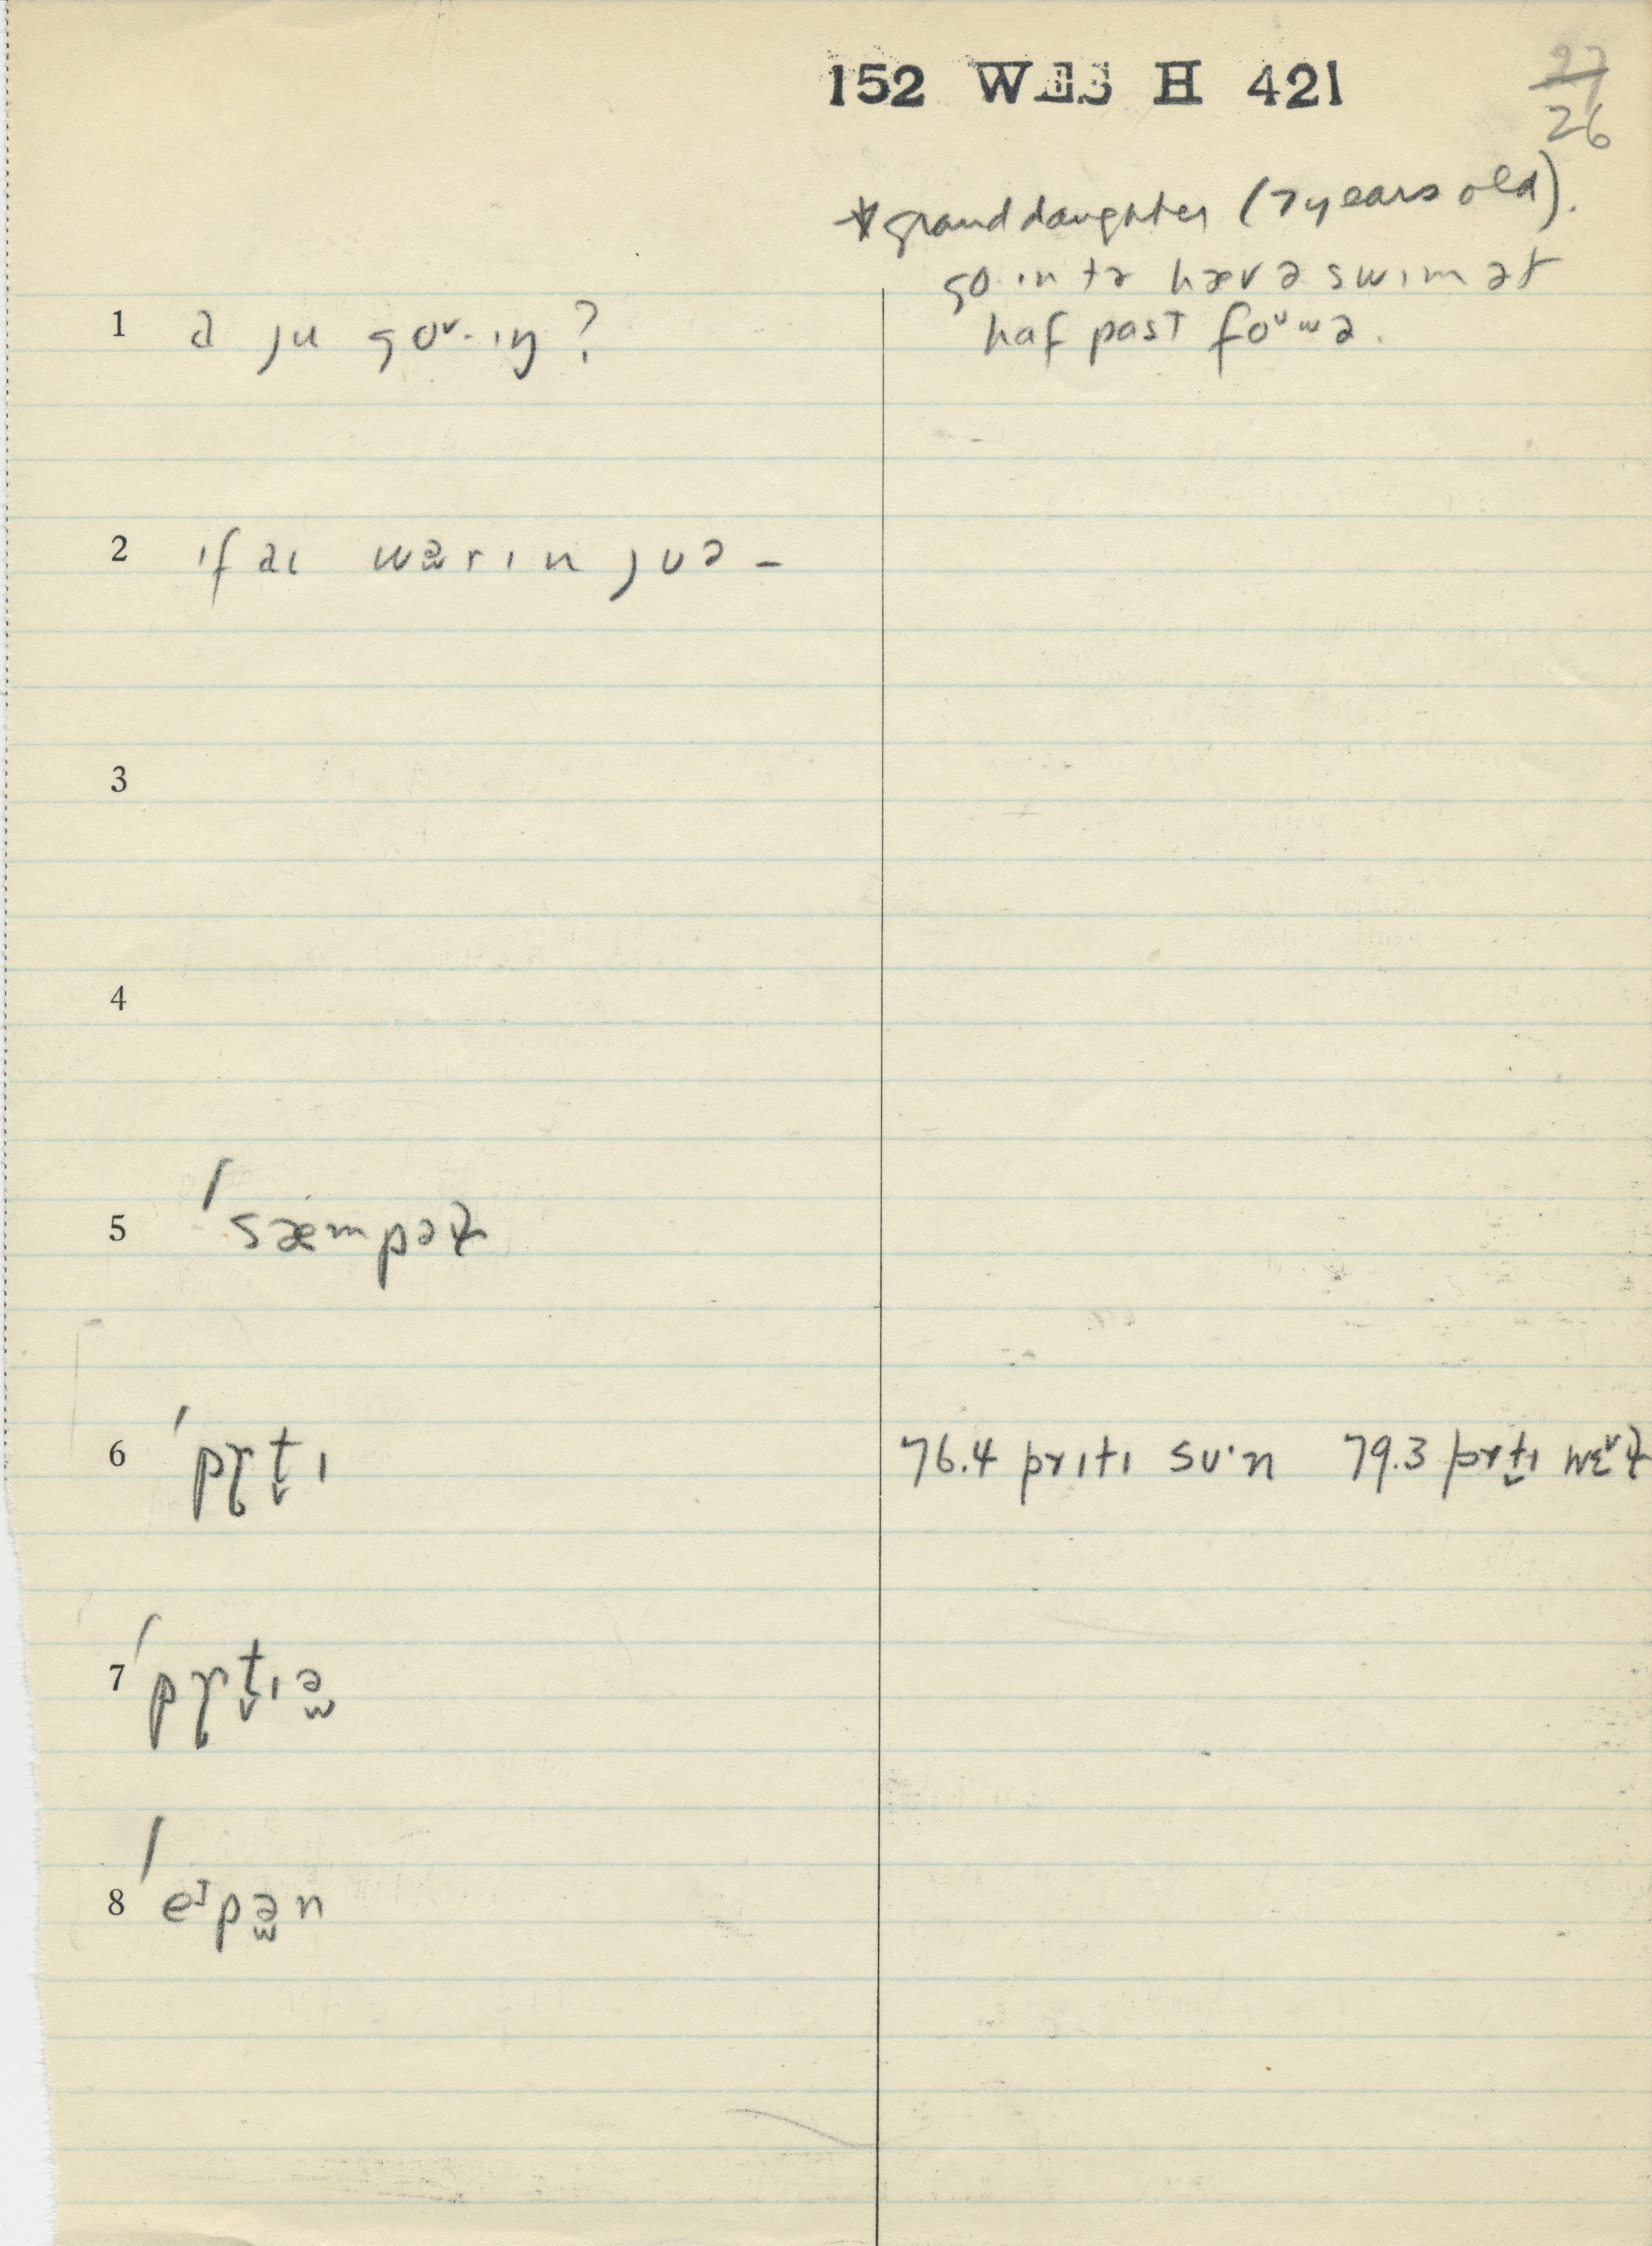 152 WES H 421
27
26
* granddaughter (7 years old).
go ın tə hæv ə swım ət
haf past foᴜwə.
1 ə ju goᴠ· ıŋ?
2 ıf aı wər ın juə –
3
4
5 ˈsæmpəɫ
6 ˈpɣt̬ı 76.4 prıtı sᴜ·n 79.3 prt̬ı wɛᵛɫ
7 ˈpɣt̬ıə̫
8 ˈeᴵpə̫n